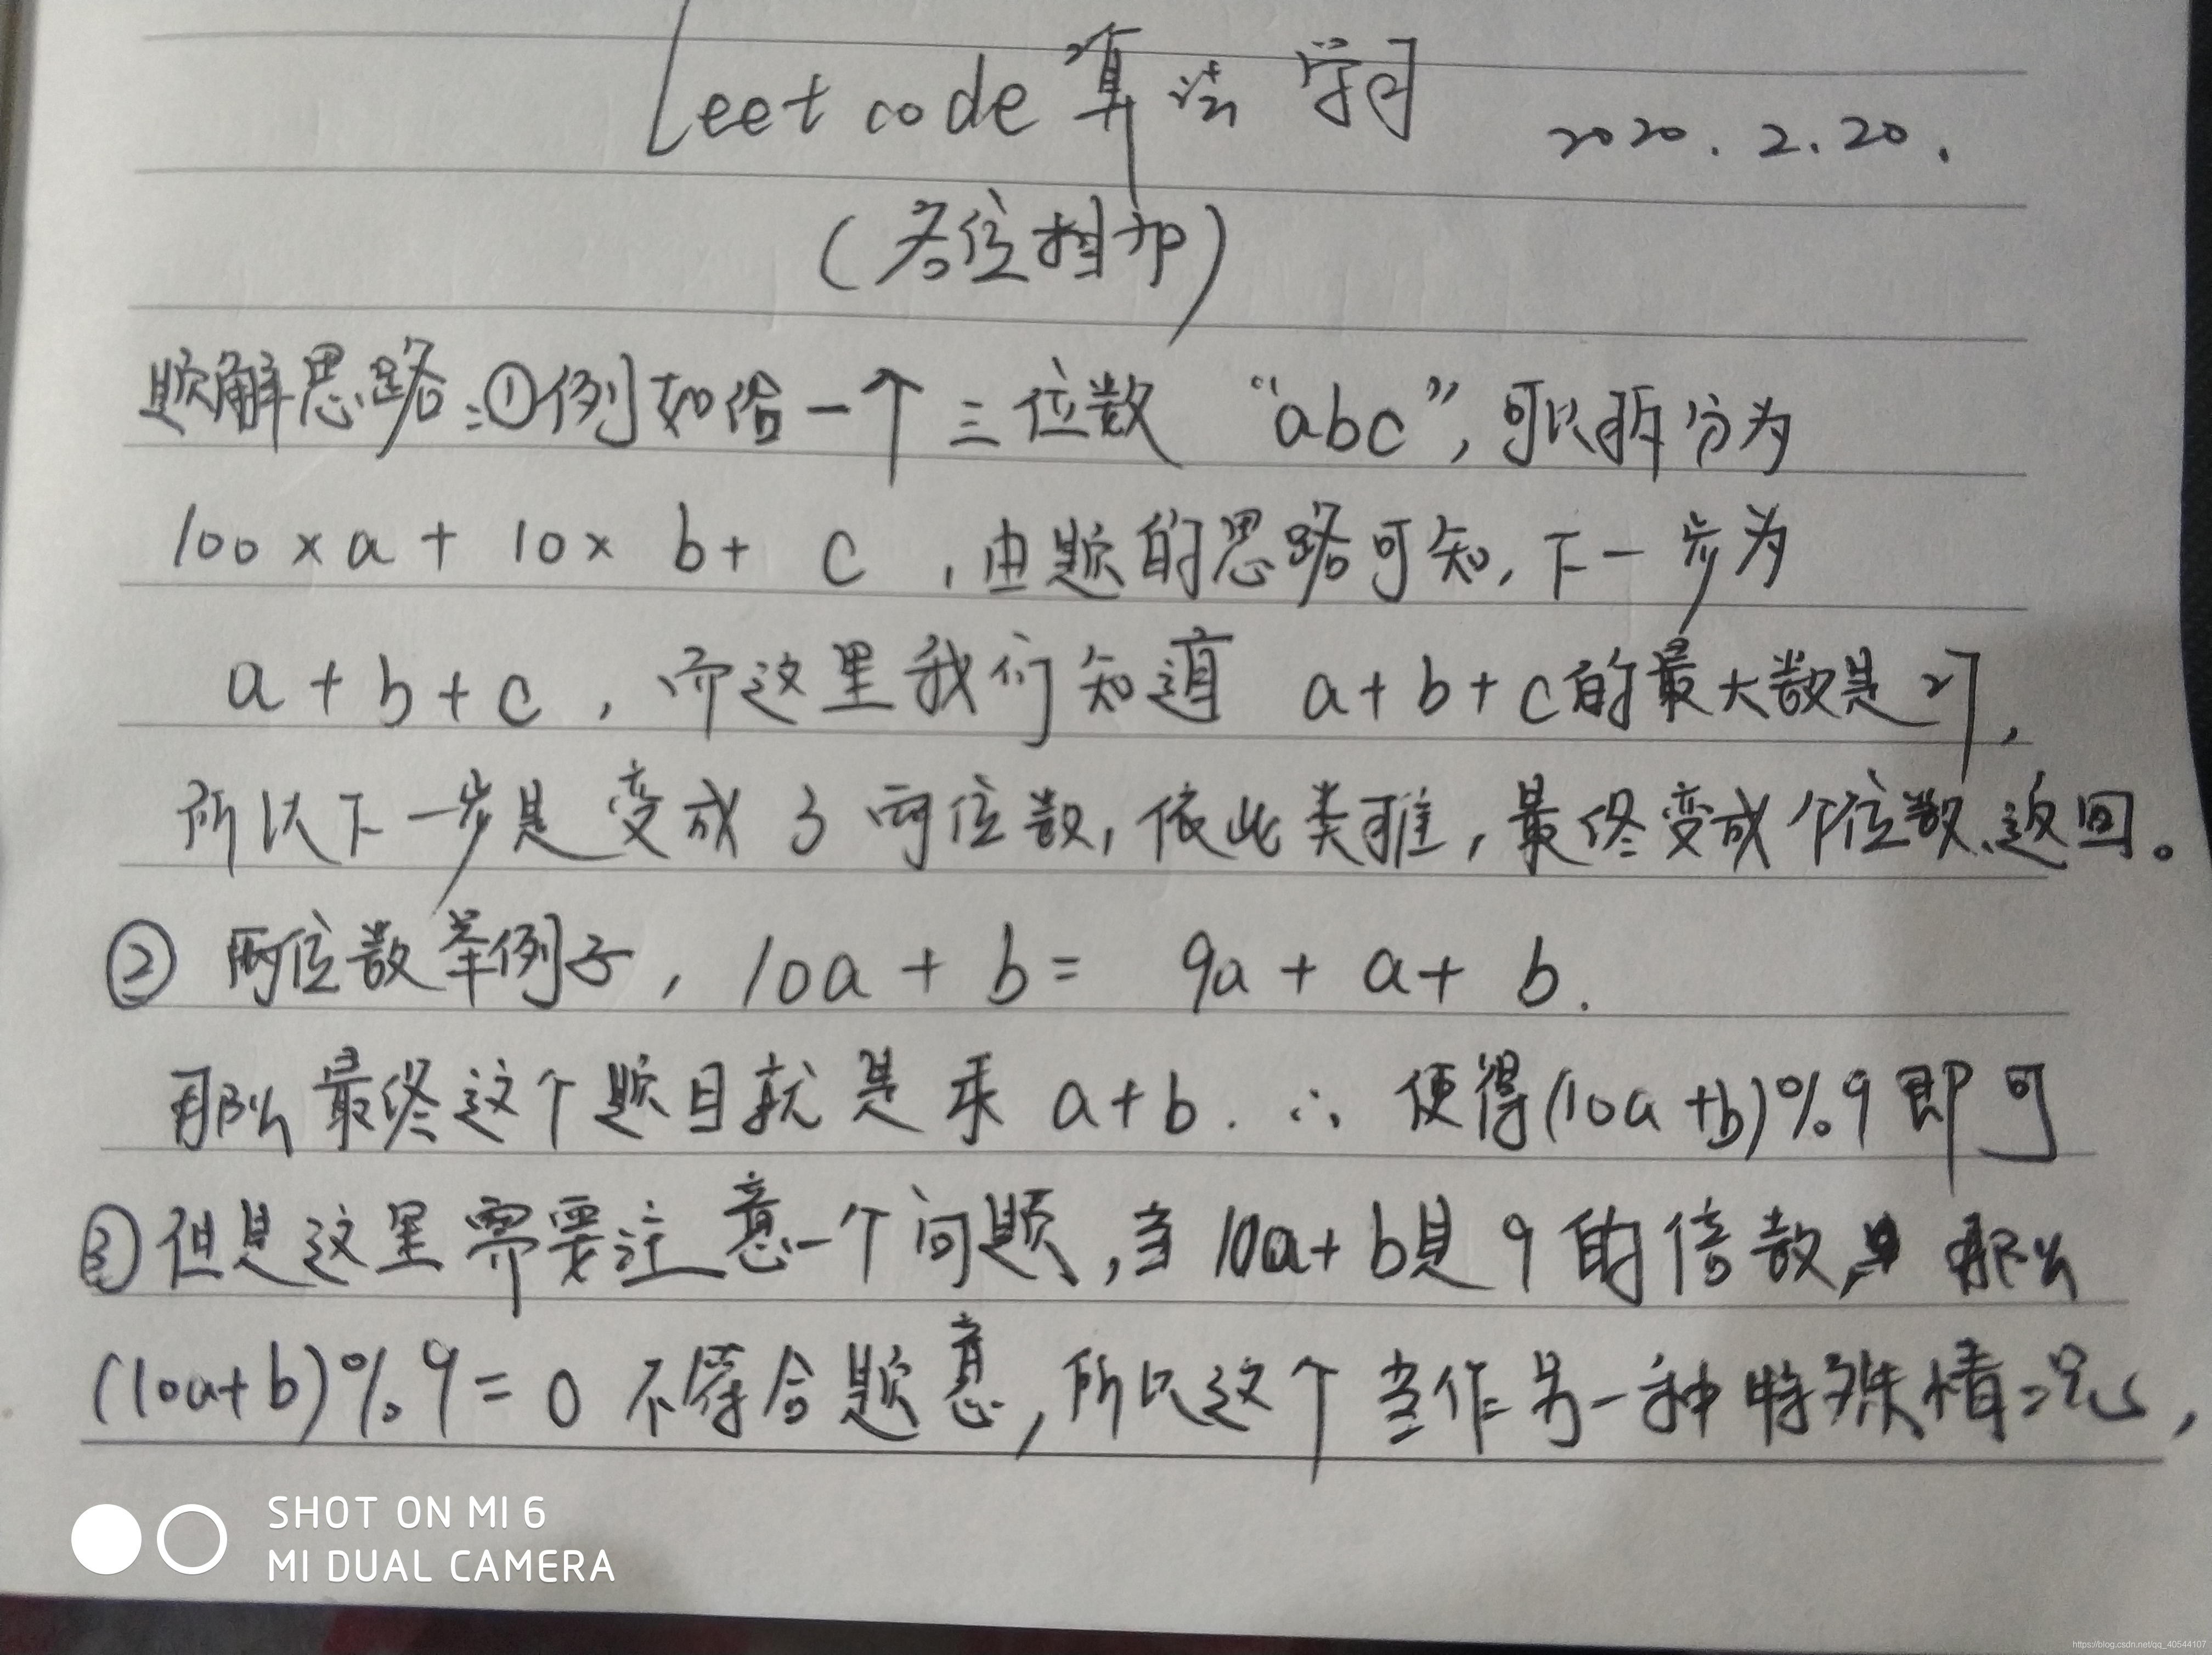 Leetcode算法学习 2020.2.20.
(各位相加)
题解思路:①例如给一个三位数 “abc”,可以拆分为
100×a+10×b+c,由题的思路可知,下一步为
a+b+c,而这里我们知道 a+b+c的最大数是27,
所以下一步是变成了两位数,依此类推,最终变成个位数返回。
② 两位数举例子,10a+b= 9a+a+b.
那么最终这个题目就是求 a+b.∴ 使得(10a+b)%9即可
③但是这里需要注意一个问题,当10a+b是9的倍数,那么
(10a+b)%9=0 不符合题意,所以这个当作另一种特殊情况,
SHOT ON MI 6
MI DUAL CAMERA
https://blog.csdn.net/qq_40544107